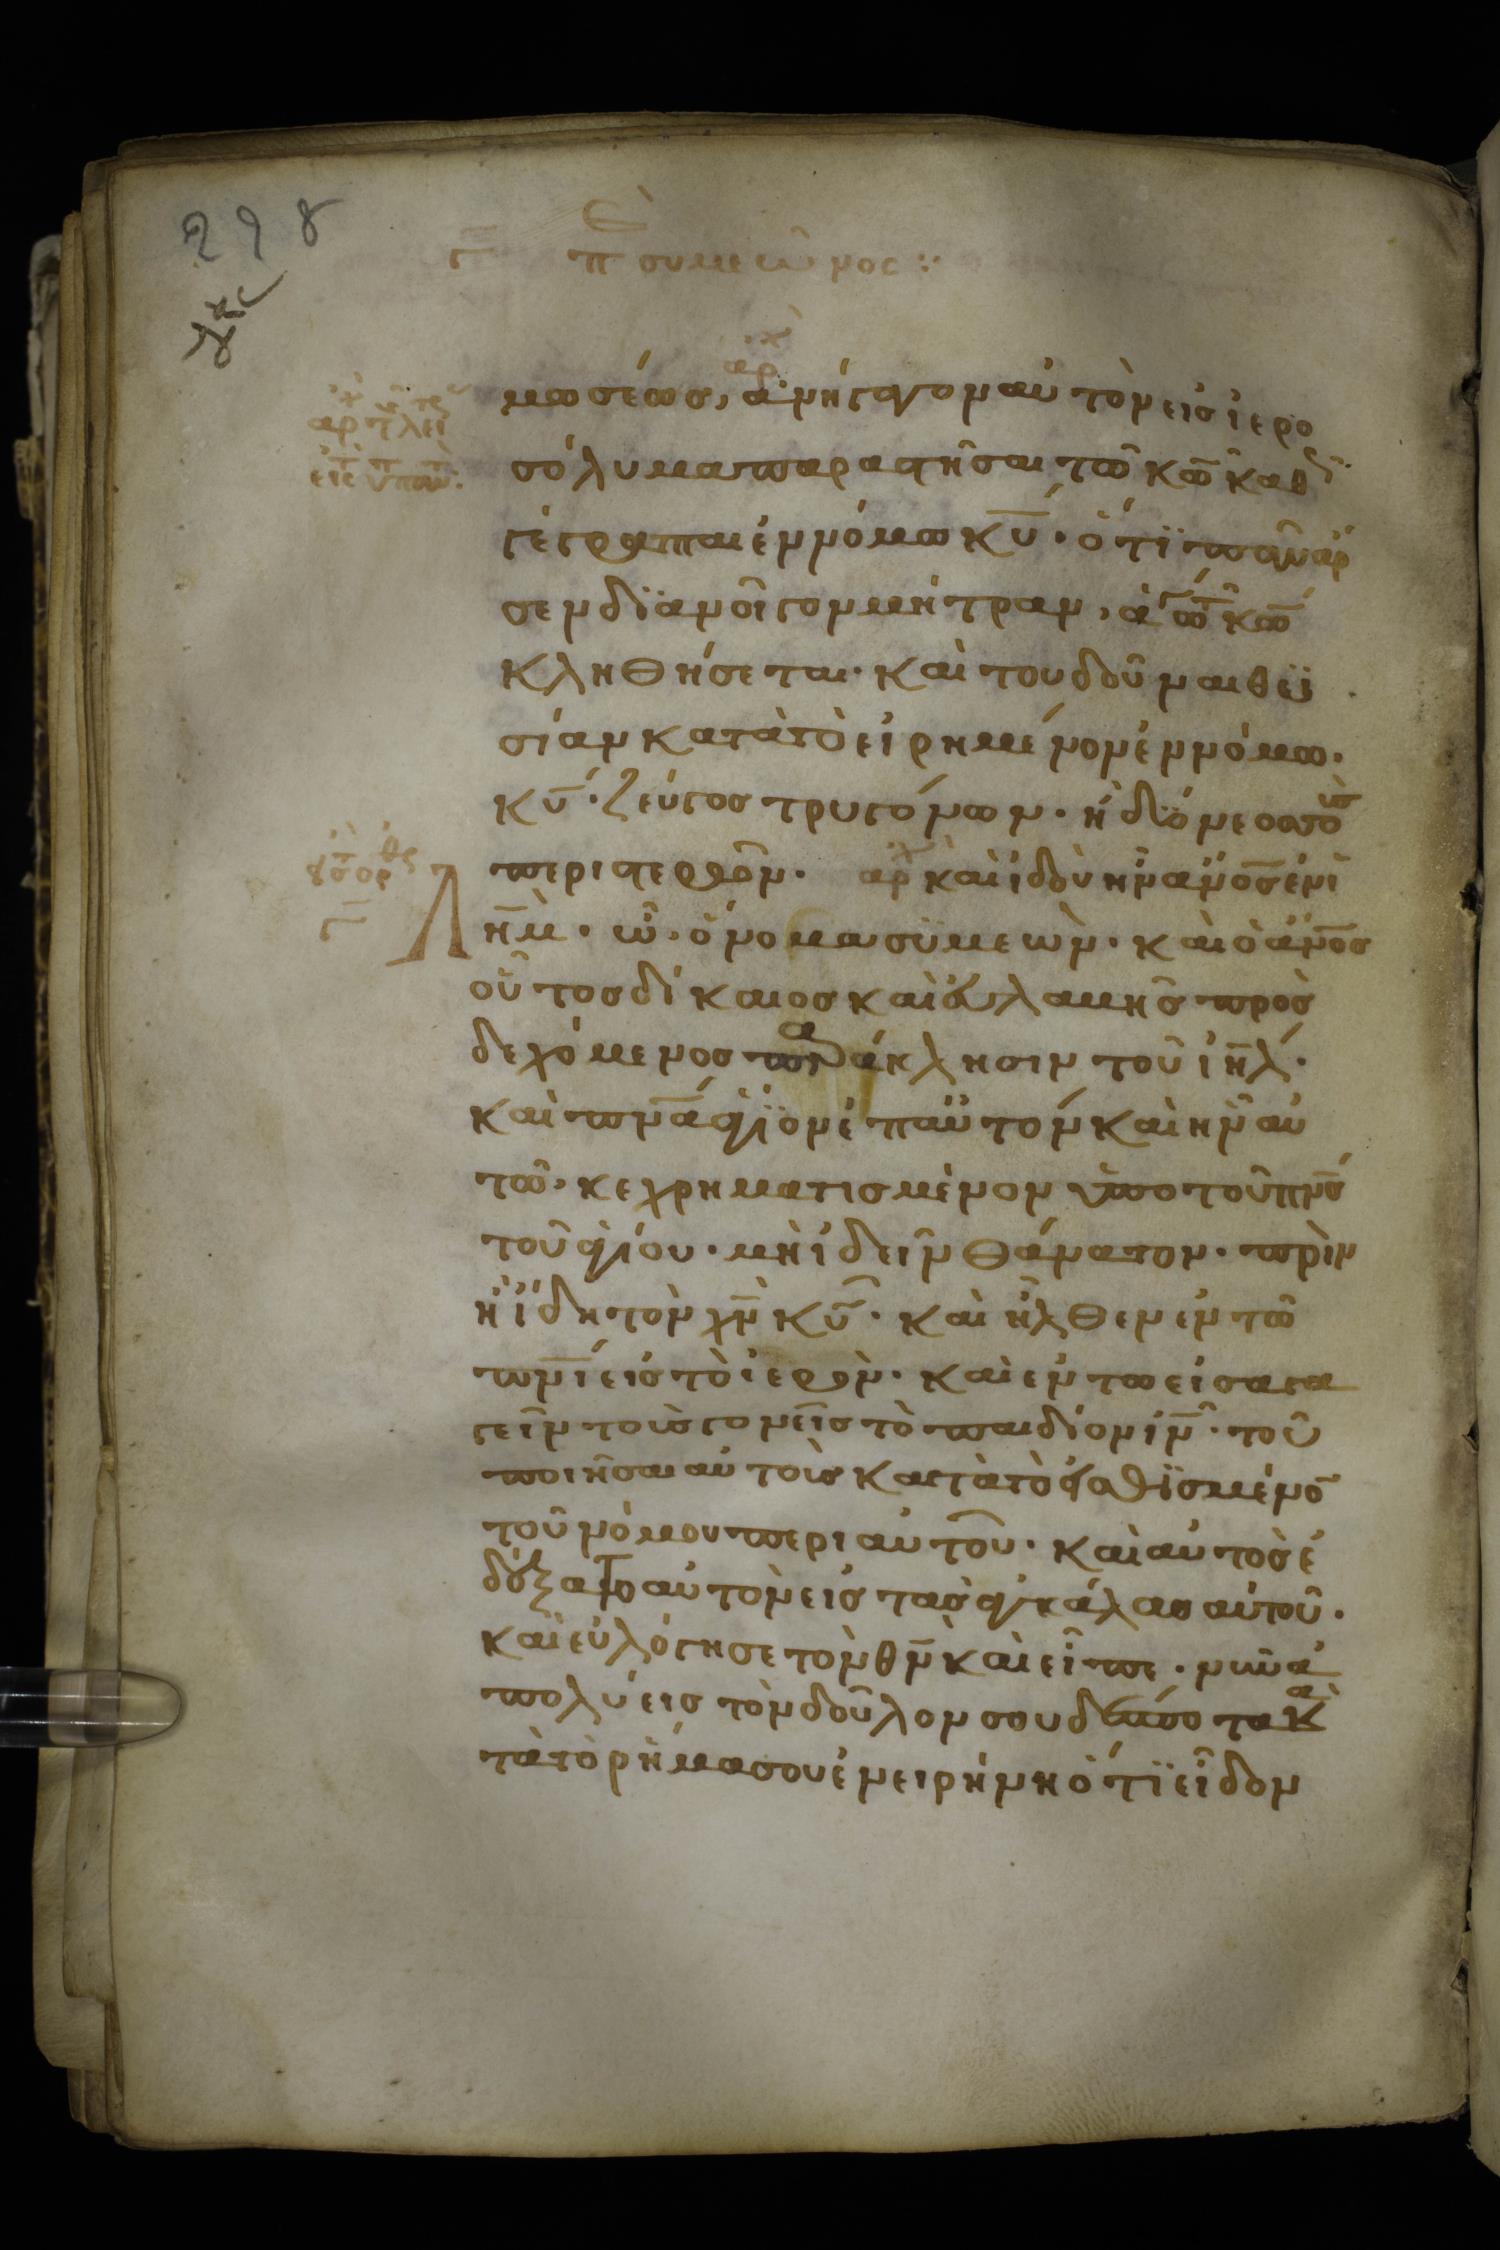 298
Γ̅ πε συμεῶνος :
μωσέως, ἀνήγαγον αὐτὸν εἰς ἱερο
σόλυμα παραστῆσαι τῶ κ̅ω καθ
γέγραπται ἐν νόμω κ̅υ· ὅτϊ πᾶν ἄρ
σεν δϊανοῖγον μήτραν, ἅγ τῶ κ̅ω
κληθήσεται· καὶ τοῦ δοῦναι θϋ
σίαν κατὰ τὸ εἰρημένον ἐν νόμω
κ̅υ· ζεύγος τρυγόνων· ἢ δϊό νεοσσοὺσ
περιστερῶν· αρχ καὶ ἰδοὺ ἦν ἄν̅οσ ἐν ϊ
η̅λμ· ὧ· ὄνομα συμεών· καὶ ὁ ἄν̅οσ
οὗτος δίκαιος καὶ εὐλαβῆς προσ
δεχόμενος παράκλησιν τοῦ ἰη̅λ·
καὶ πν̅α ἅγϊον ἐπ αὐτόν καὶ ἦν αὐ
τῶ, κεχρηματισμένον ὑπὸ τοῦ πν̅σ
τοῦ ἁγίου· μὴ ἰδεῖν θάνατον· πρὶν
ἢ ἴδη τὸν χ̅ν κ̅υ· καὶ ἦλθεν ἐν τῶ
πν̅ι εἰς τὸ ἱερόν· καὶ ἐν τω εἰσαγα
γεῖν τοὺς γονεῖς τὸ παιδίον ἰ̅ν· τοῦ
ποιῆσαι αὐτοὺς κατὰ τὸ εἰθϊσμένο
τοῦ νόμου περι αὐτοῦ· καὶ αὐτὸς ἐ
δέξατο αὐτὸν εἰς τὰς ἀγκάλας αὐτοῦ·
καὶ εὐλόγησε τὸν θ̅ν καὶ εἶπε· νῦν ἀ
πολύεις τὸν δοῦλον σου δέσποτα κα
τὰ τὸ ρῆμα σου ἐν εἰρήνη ὅτϊ εἶδον